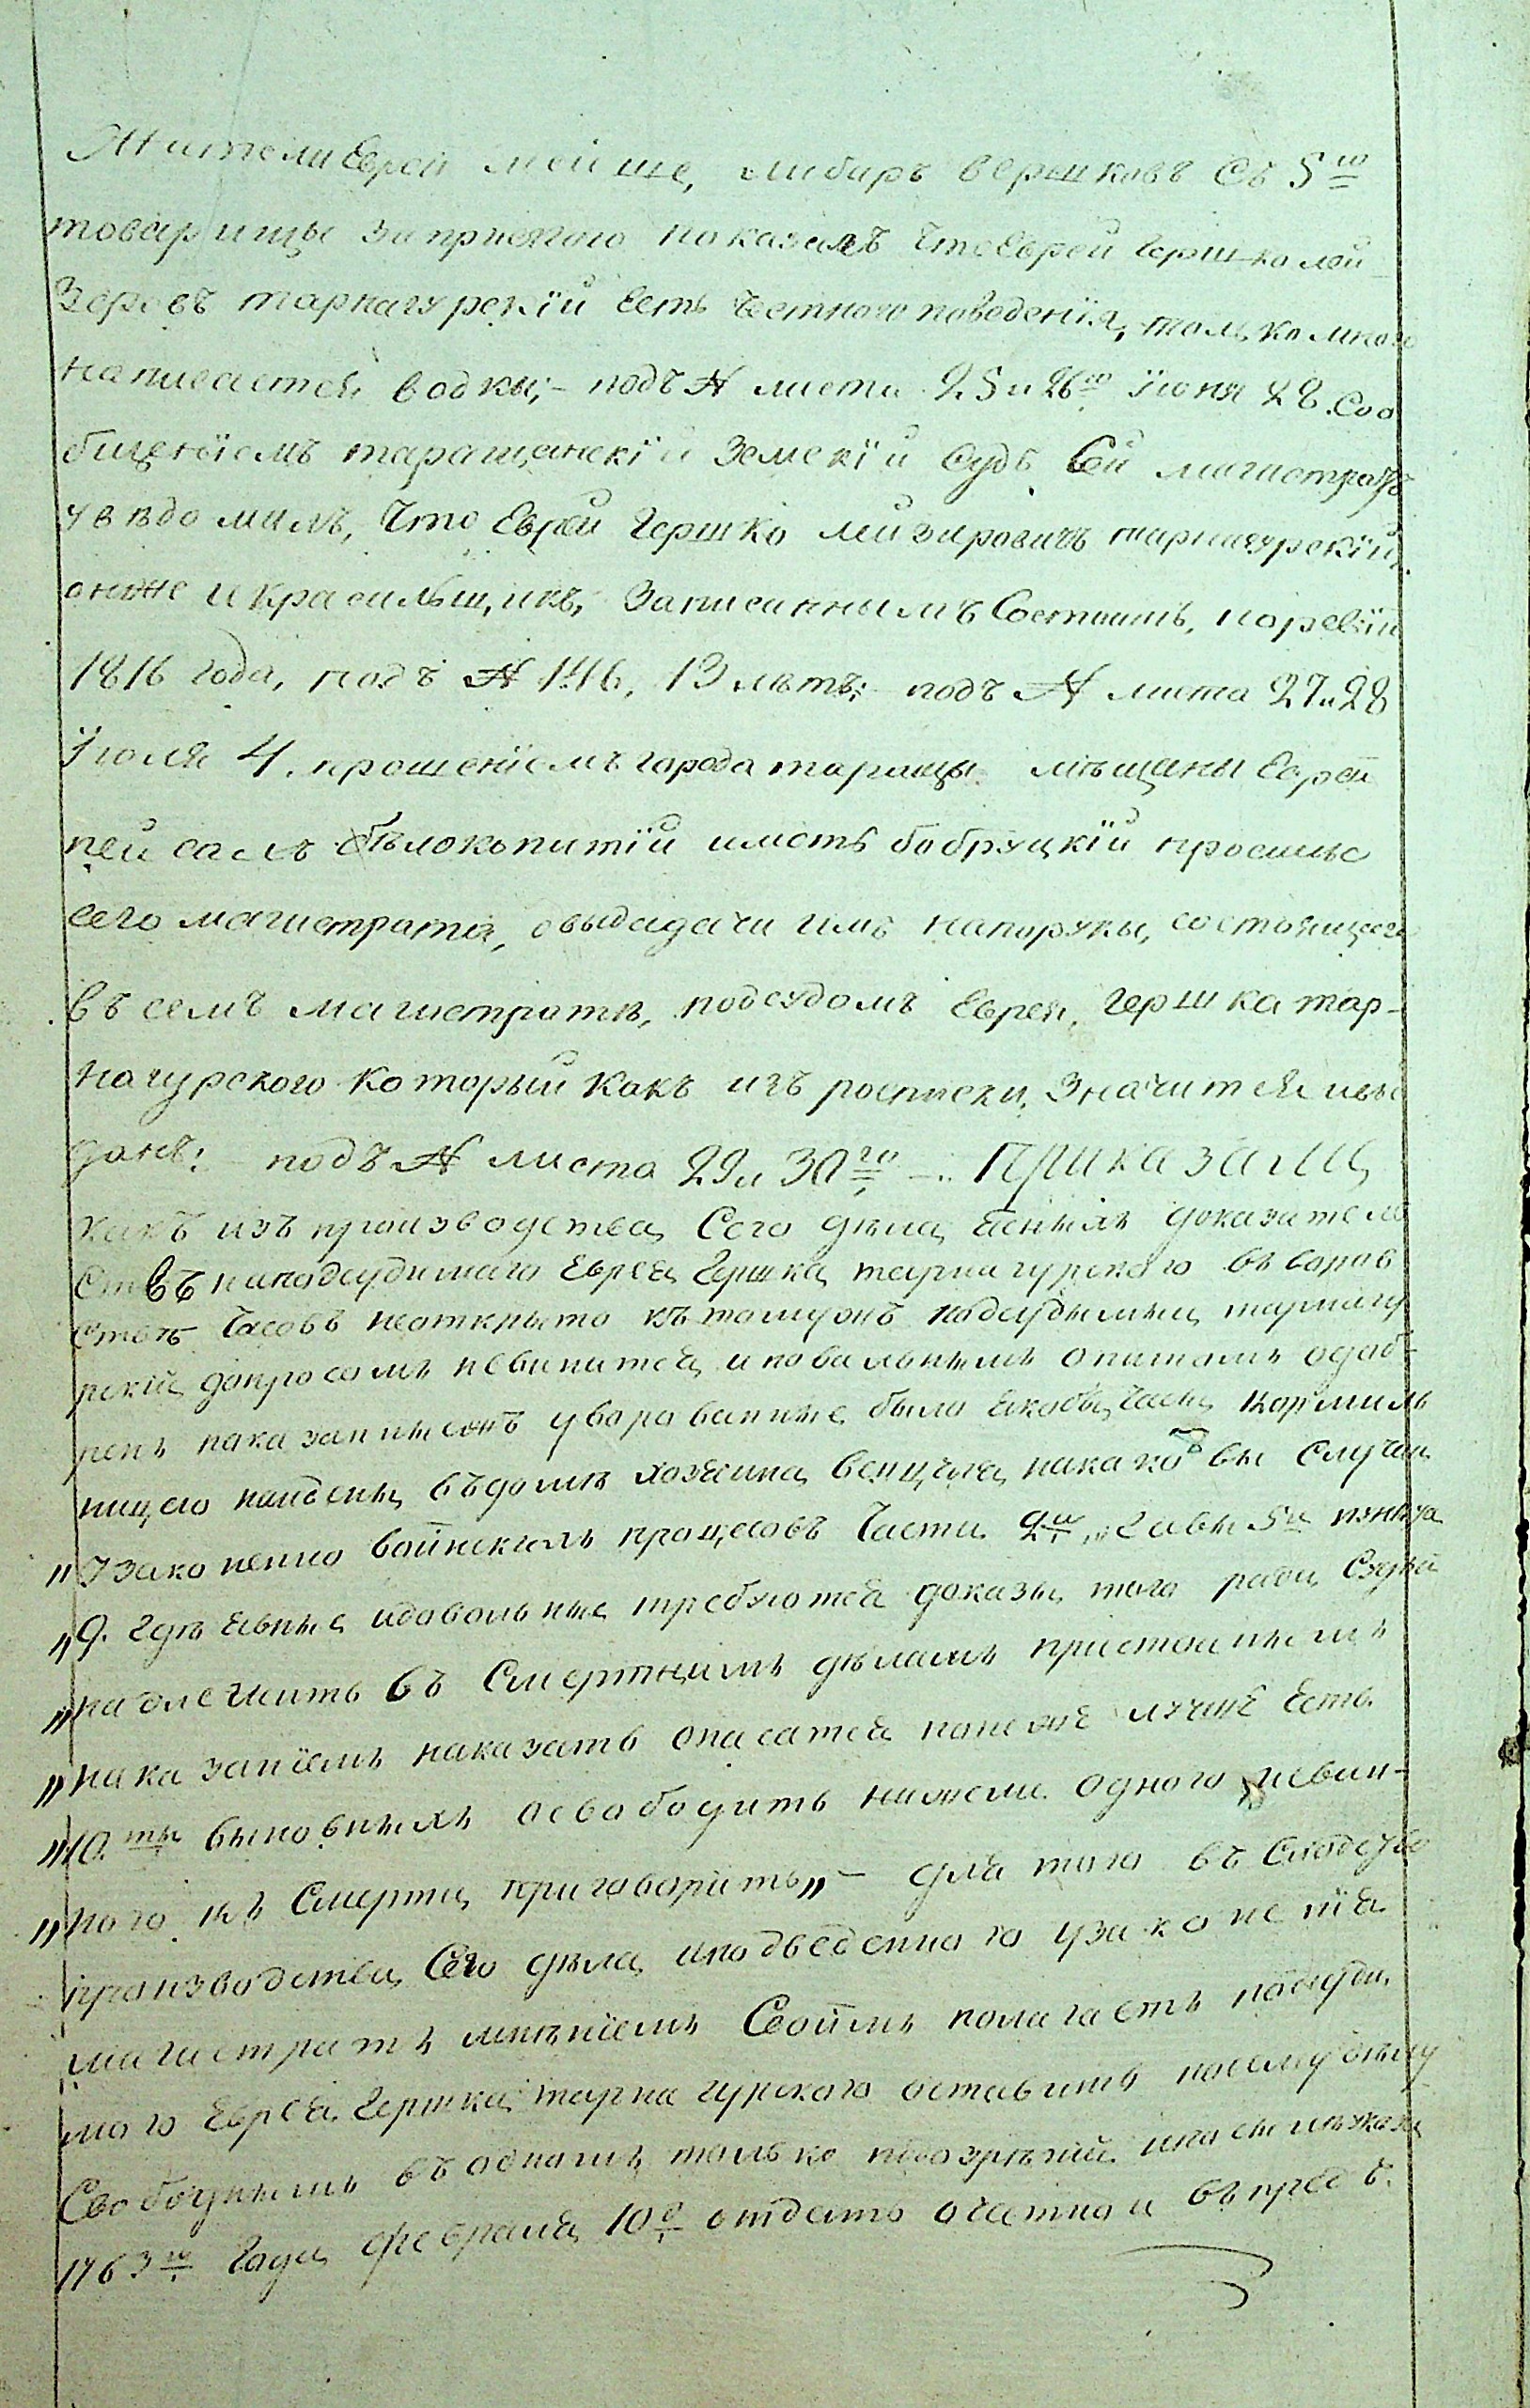 Жители Евреи Мейше, Либаръ Вершковъ съ 5ю
товарищы за присягою показалъ что Еврей Гершко Лей-
зеровъ тарнагурскій есть честного поведенія, только много
напивается водки; – подъ № листа 25 и 26го Іюня 28. Соо
бщеніемъ таращанскій Земскій Судъ Сей магистратъ
увѣдомилъ, что Еврей Гершко Лейзировичъ тарнагурскій
онже и красильщикъ, Записаннымъ Состоитъ, поревізіи
1816 года, подъ № 146, 13 лѣтъ; подъ № листа 27 и 28
Іюля 4. прошеніемъ города таращы мѣщаны Евреи
пейсалъ бѣлокопитій ... бобруцкій просили
сего магистрата, овыдадачи имъ напоруки, состоящего
въ семъ магистратѣ, подсудомъ Еврея, Гершка тар-
нагурского который какъ изъ росписки, значится ивы
данъ; – подъ № листа 29 и 30го –.. Приказали
какъ изъ производства Сего дѣла ясныхъ доказатель
ствъ наподсудимаго Еврея Гершка тарнагурского въ воров
ствѣ часовъ неоткрыто кътомуонъ подсудымый тарнагу
рскій допросомъ невинится, и повальнымъ опитомъ одоб-
ренъ показаннымонъ уворованные было якобы часы кормиль
ницею найдены въдомѣ хозяина ... накаковы случаи
„Узаконенно воинскихъ процесовъ Части 2й, главы 5й пункта
„9. гдѣ явные идовольные требуются доказы, того ради Судьи
„надлежитъ въ Смертнимъ дѣламъ пристойнымъ
„наказаніемъ наказать опасатся понеже лучше есть
„10.ть выновныхъ освободить нижели одного невин-
„ного къ Смерти приговорить„ – для того въ Слѣдству
производства Сего дѣла иподведенного узаконенія
магистратъ мнѣніемъ Своимъ полагаетъ подсуди
мого Еврея Гершка тарнагурского оставить посемудѣлу
Свободнымъ въ одномъ только подозрѣніи ипосилѣуказа
1763го Года февраля 10д отдать очетной въпредъ.